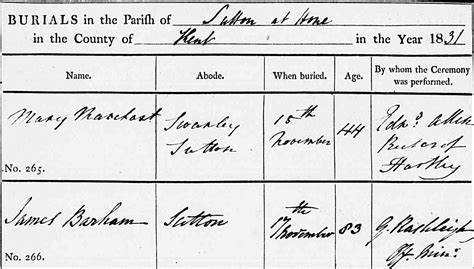 BURIALS in the Parish of Sutton at Hone
in the County of Kent in the Year 1831
Name. Abode. When buried. Age. By whom the Ceremony was performed.
Mary Marchant
No. 265.
Swanley
Sutton
15th
November
44
Rector of
Hartley
James Barham
No. 266.
Sutton
17th
November
83
G. Rashleigh
Off. Minr.